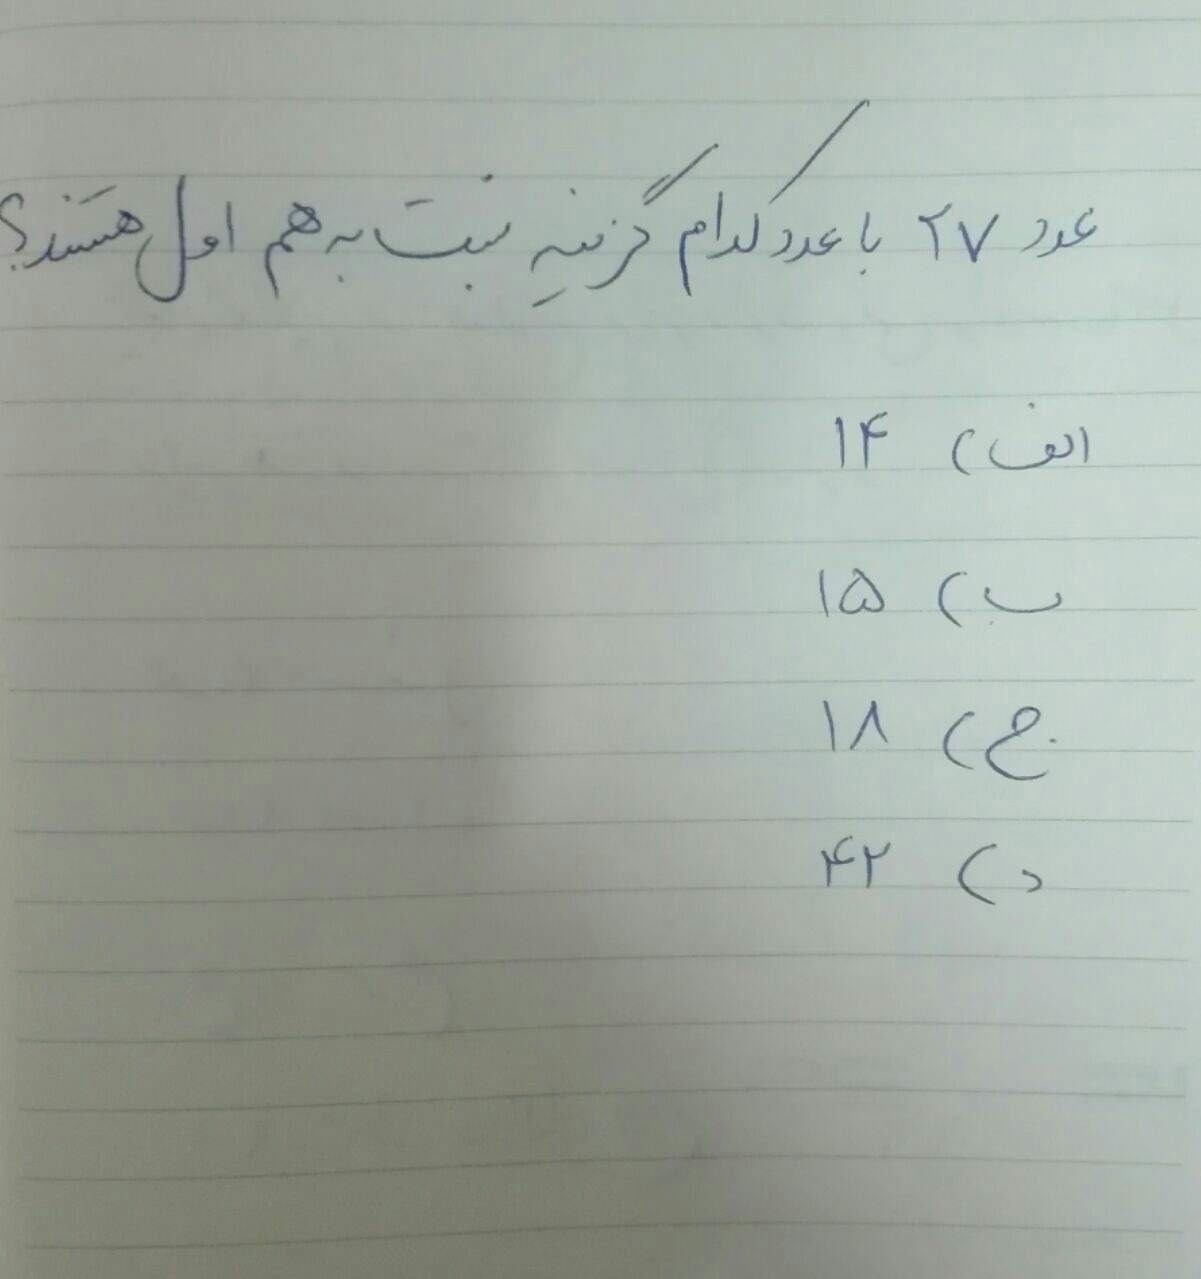 عدد ۲۷ با عدد کدام گزینهِ نسبت به هم اول هستند؟
الف) ۱۴
ب) ۱۵
ج) ۱۸
د) ۴۲